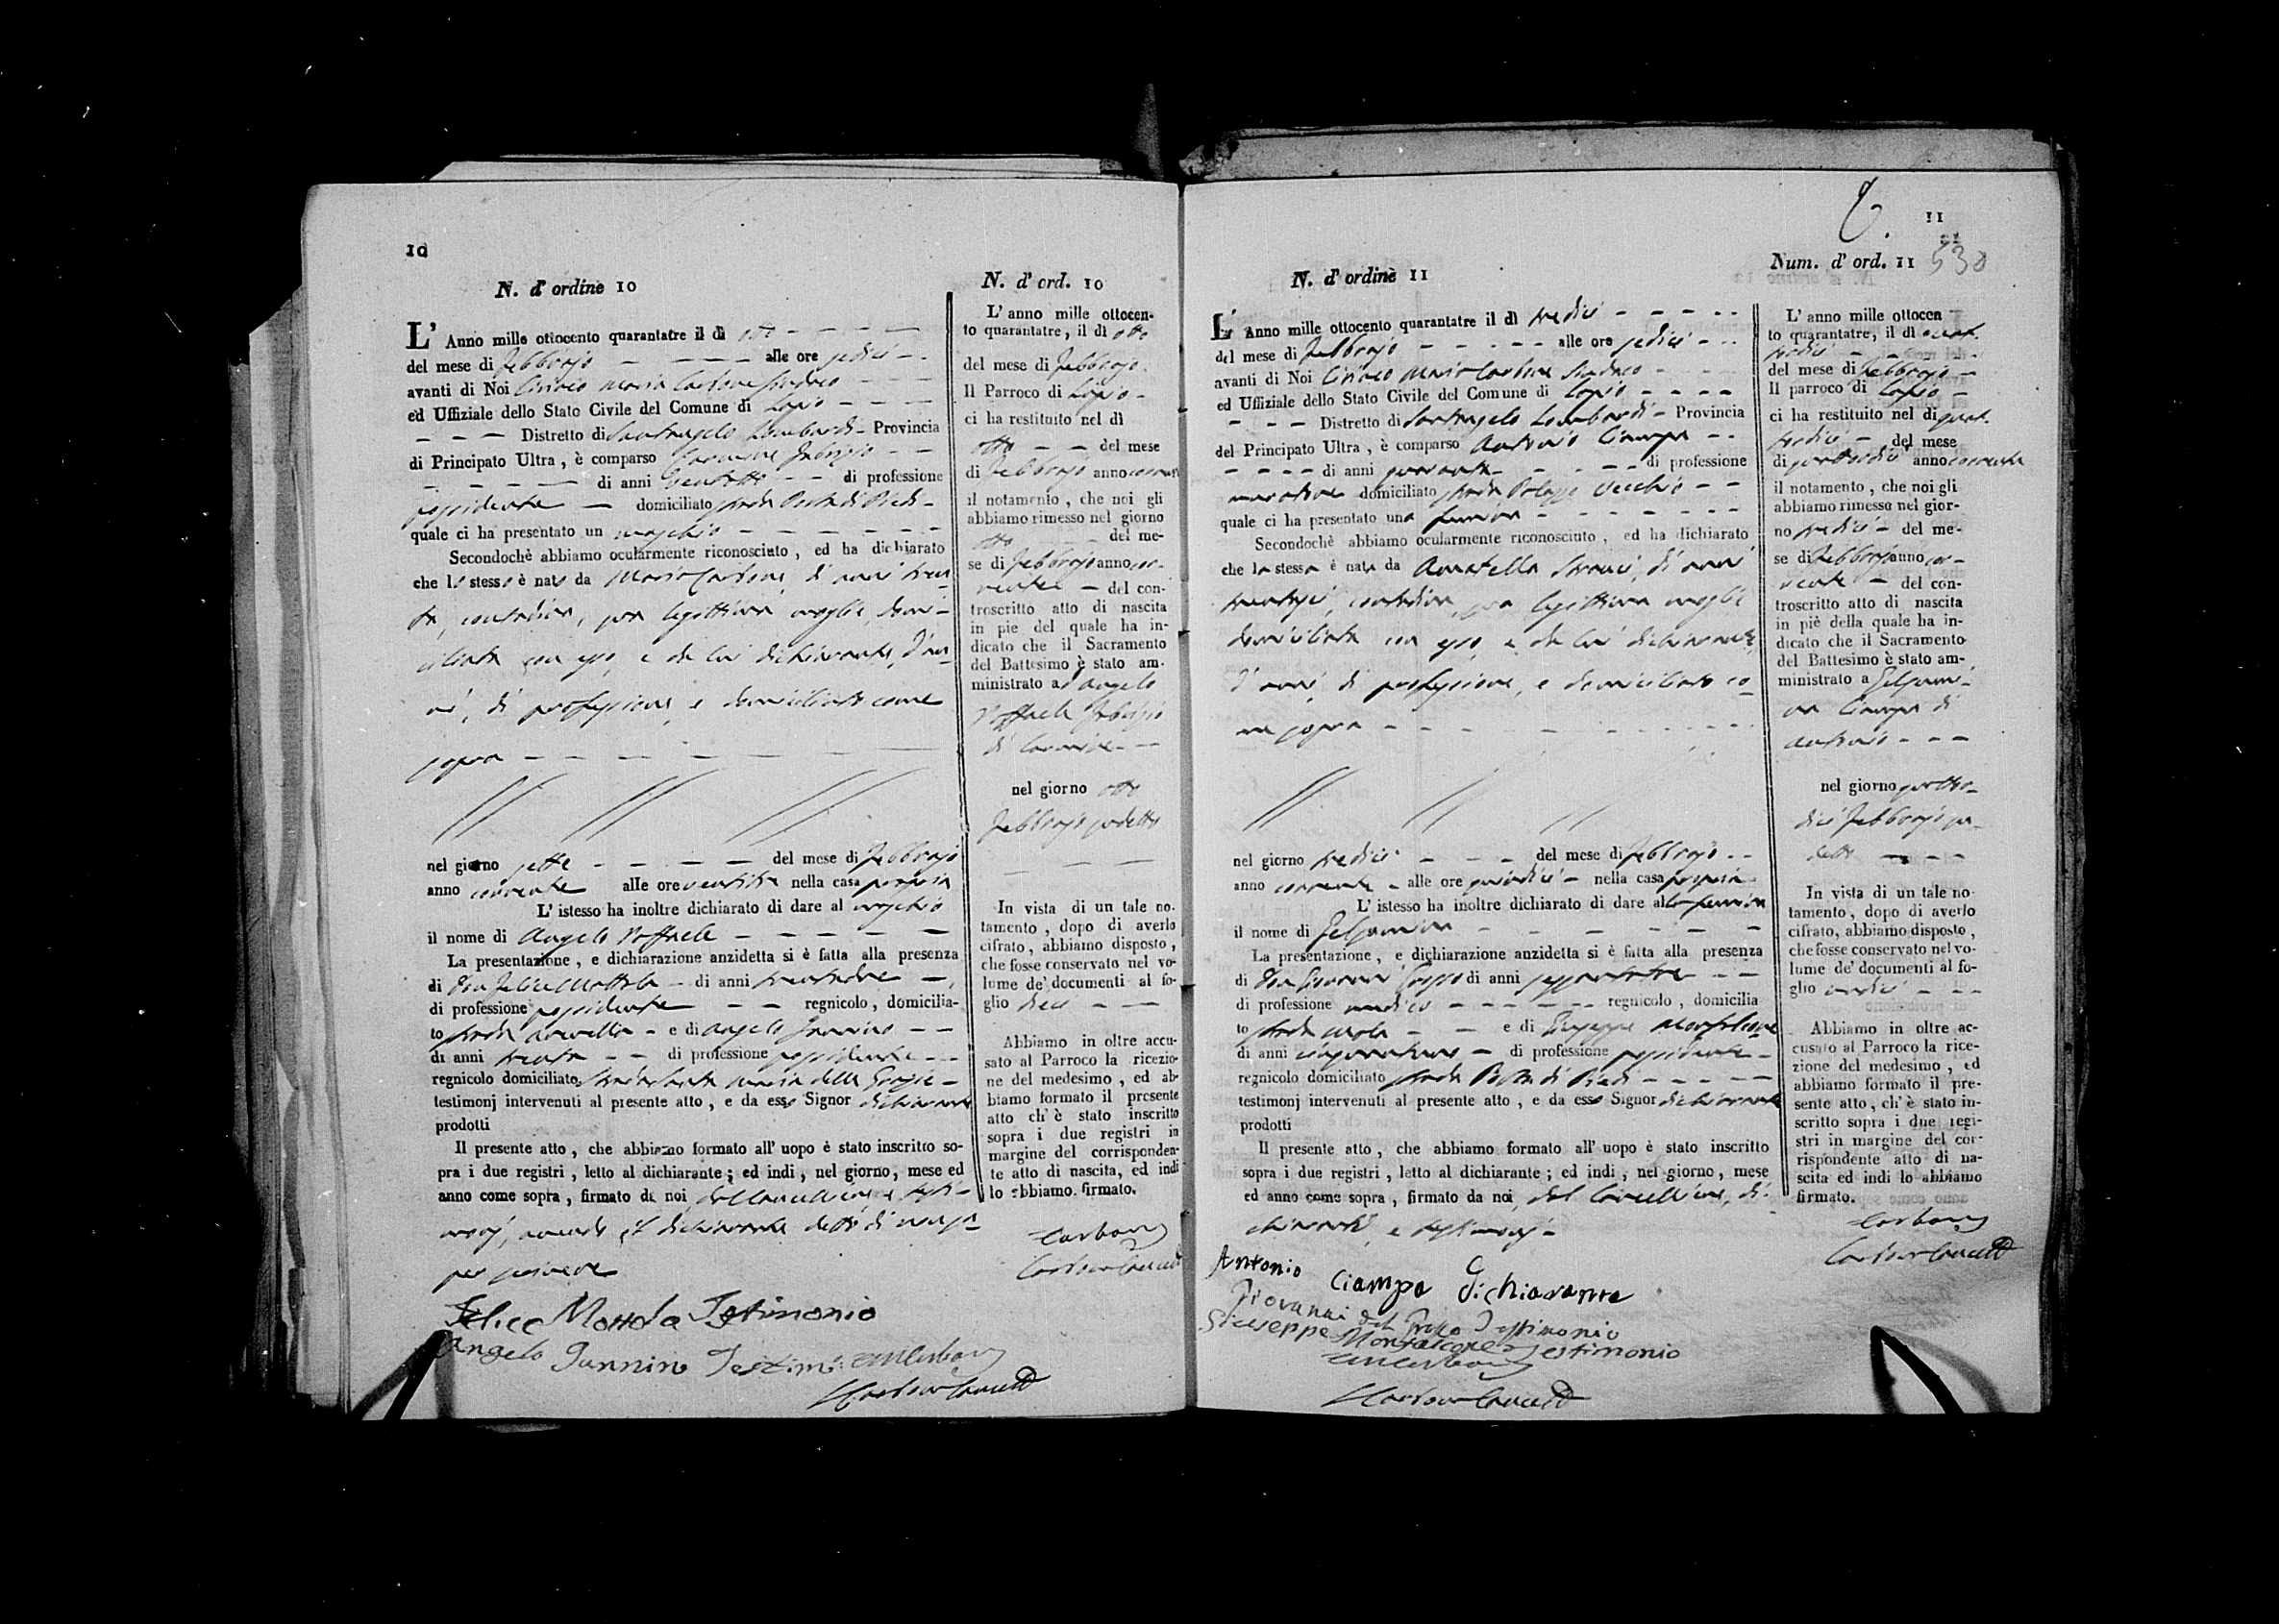 10
N. d' ordine 10
L' Anno mille ottocento quarantatre il dì otto
del mese di Febbrajo alle ore sedici
avanti di Noi Ciriaco Maria Carbone Sindaco
ed Uffiziale dello Stato Civile del Comune di Lapio
Distretto di Santangelo Lombardi Provincia
di Principato Ultra, è comparso Carmine Fabrizio
di anni ventotto di professione
possidente domiciliato strada Porta di Piedi
quale ci ha presentato un maschio
Secondochè abbiamo ocularmente riconosciuto, ed ha dichiarato
che lo stesso è nato da Maria Carbone, di anni tren-
ta, contadina, sua legittima moglie, domi-
ciliata con esso, e da lui dichiarante, d'an-
ni, di professione, e domiciliato come
sopra
nel giorno sette del mese di Febbrajo
anno corrente alle ore ventitre nella casa propria
L' istesso ha inoltre dichiarato di dare al maschio
il nome di Angelo Raffaele
La presentazione, e dichiarazione anzidetta si è fatta alla presenza
di Don Felice Mottola di anni trentadue
di professione possidente regnicolo, domicilia-
to strada e di Angelo Iannino
di anni trenta di professione possidente
regnicolo domiciliato strada Santa Maria delle Grazie
testimonj intervenuti al presente atto, e da esso Signor dichiarante
prodotti
Il presente atto, che abbiamo formato all' uopo è stato inscritto so-
pra i due registri, letto al dichiarante; ed indi, nel giorno, mese ed
anno come sopra, firmato da noi, dal Cancelliere, e testi-
monj, avendo il dichiarante detto di non sa-
per scrivere
Felice Mottola Testimonio
Angelo Iannino Testimo
N. d' ord. 10
L' anno mille ottocen-
to quarantatre, il dì otto
del mese di Febbrajo
Il Parroco di Lapio
ci ha restituito nel dì
otto del mese
di Febbrajo anno corrente
il notamento, che noi gli
abbiamo rimesso nel giorno
otto del me-
se di Febbrajo anno cor-
rente del con-
troscritto atto di nascita
in piè del quale ha in-
dicato che il Sacramento
del Battesimo è stato am-
ministrato ad Angelo
Raffaele Fabrizio
di Carmine
nel giorno otto
Febbrajo sudetto
In vista di un tale no-
tamento, dopo di averlo
cifrato, abbiamo disposto,
che fosse conservato nel vo-
lume de' documenti al fo-
glio dieci
Abbiamo in oltre accu-
sato al Parroco la ricezio-
ne del medesimo, ed ab-
biamo formato il presente
atto ch' è stato inscritto
sopra i due registri in
margine del corrisponden-
te atto di nascita, ed indi
lo abbiamo firmato.
Carbone
11
530
N. d' ordinè 11
L' Anno mille ottocento quarantatre il dì tredici
del mese di Febbrajo alle ore sedici
avanti di Noi Ciriaco Maria Carbone Sindaco
ed Uffiziale dello Stato Civile del Comune di Lapio
Distretto di Santangelo Lombardi Provincia
del Principato Ultra, è comparso Antonio Ciampa
di anni quaranta di professione
muratore domiciliato strada Palazzo Vecchio
quale ci ha presentato una femina
Secondochè abbiamo ocularmente riconosciuto, ed ha dichiarato
che la stessa è nata da Donatella di anni
trentasei, contadina, sua legittima moglie
domiciliata con esso, e da lui dichiarante,
d'anni, di professione, e domiciliato co-
me sopra
nel giorno tredici del mese di Febbrajo
anno corrente alle ore quindici nella casa propria
L' istesso ha inoltre dichiarato di dare alla femina
il nome di Filomena
La presentazione, e dichiarazione anzidetta si è fatta alla presenza
di Don Giovanni di anni
di professione medico regnicolo, domicilia
to strada e di Giuseppe Monfalcone
di anni cinquantuno di professione possidente
regnicolo domiciliato strada Porta di Piedi
testimonj intervenuti al presente atto, e da esso Signor dichiarante
prodotti
Il presente atto, che abbiamo formato all' uopo è stato inscritto
sopra i due registri, letto al dichiarante; ed indi, nel giorno, mese
ed anno come sopra, firmato da noi, dal Cancelliere, di-
chiarante, e testimonj
Antonio Ciampa dichiarante
Giovanni Testimonio
Giuseppe Monfalcone Testimonio
Num. d' ord. 11
L' anno mille ottocen
to quarantatre, il dì quat-
tordici
del mese di Febbrajo
Il parroco di Lapio
ci ha restituito nel dì quat-
tordici del mese
di quattordici anno corrente
il notamento, che noi gli
abbiamo rimesso nel gior-
no tredici del me-
se di Febbrajo anno cor-
rente del con-
troscritto atto di nascita
in piè della quale ha in-
dicato che il Sacramento
del Battesimo è stato am-
ministrato a Filome-
na Ciampa di
Antonio
nel giorno quattor-
dici Febbrajo su-
detto
In vista di un tale no-
tamento, dopo di averlo
cifrato, abbiamo disposto,
che fosse conservato nel vo-
lume de' documenti al fo-
glio undici
Abbiamo in oltre ac-
cusato al Parroco la rice-
zione del medesimo, ed
abbiamo formato il pre-
sente atto, ch' è stato in-
scritto sopra i due regi-
stri in margine del cor-
rispondente atto di na-
scita ed indi lo abbiamo
firmato.
Carbone